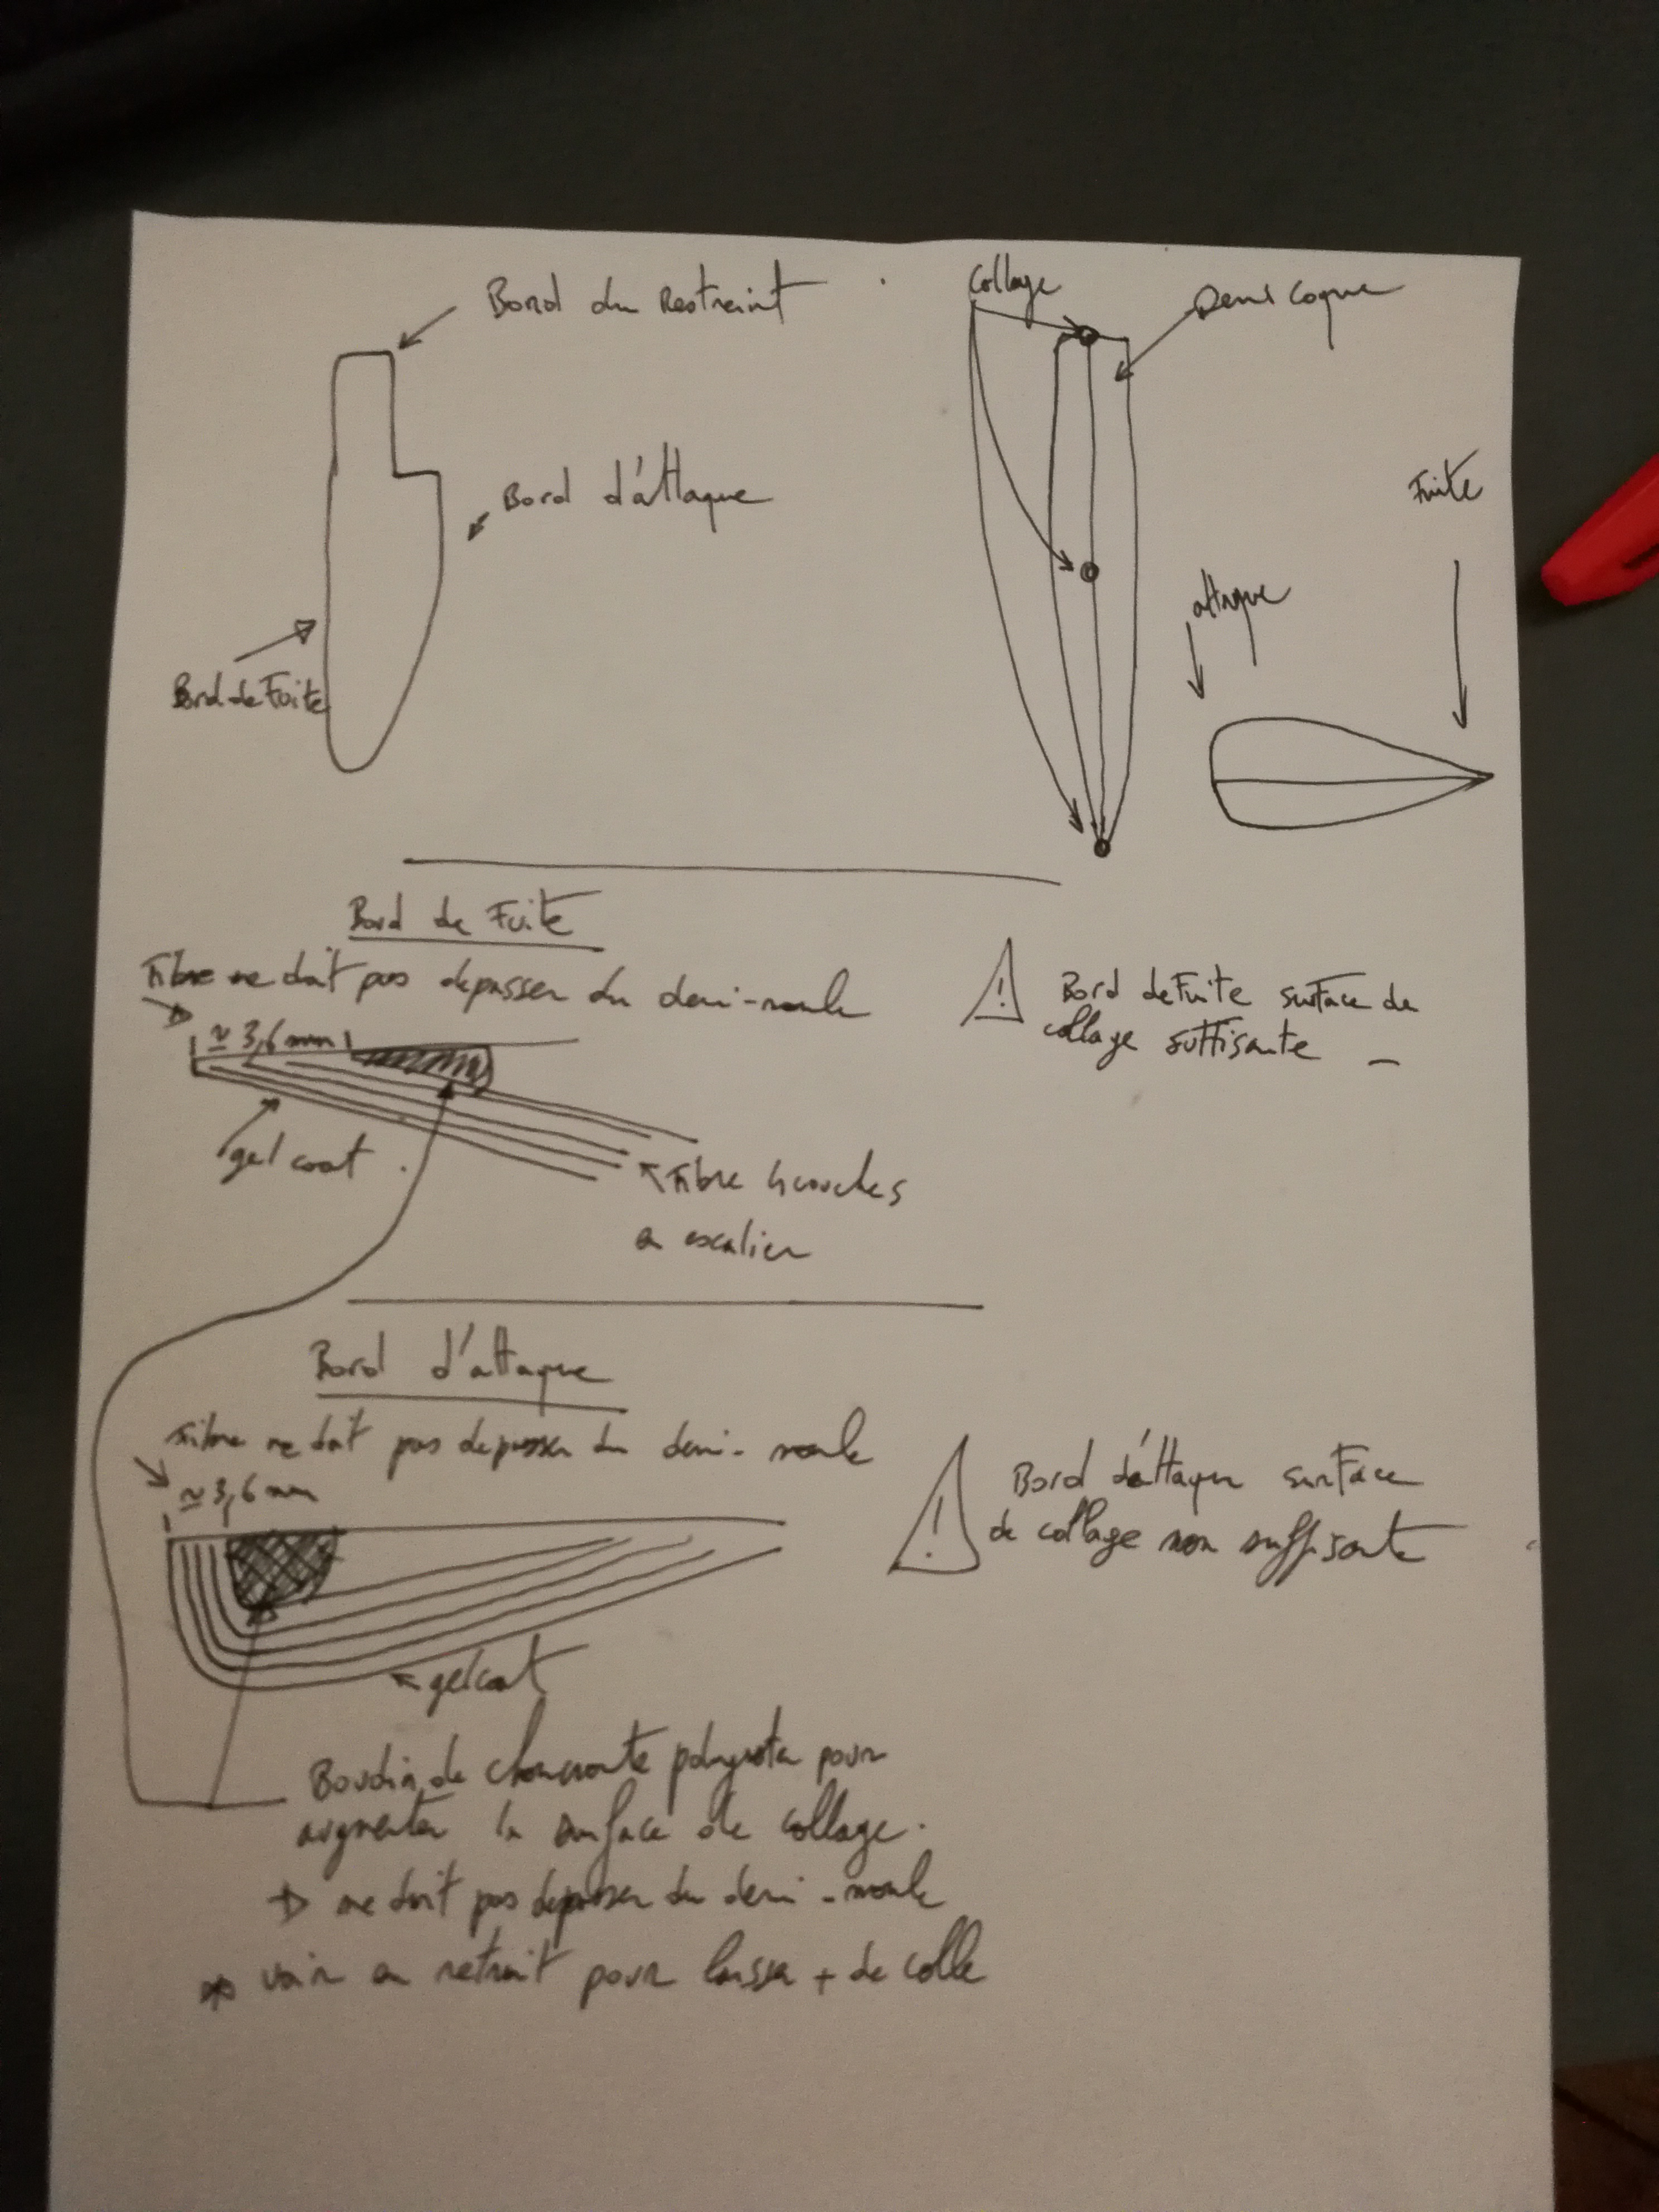 Bord du Restreint
Collage
Demi coque
Bord d'attaque
Fuite
attaque
Bord de Fuite
Bord de Fuite
Fibre ne doit pas depasser du demi-moule
≈ 3,6 mm
Bord de Fuite surface de
collage suffisante
gel coat
Fibre 4 couches
en escalier
Bord d'attaque
Fibre ne doit pas depasser du demi-moule
≈ 3,6 mm
Bord d'attaque surface
de collage non suffisante
gelcoat
Boudin de choucroute polyester pour
augmenter la surface de collage.
ne doit pas depasser du demi-moule
voir en retrait pour laisser + de colle